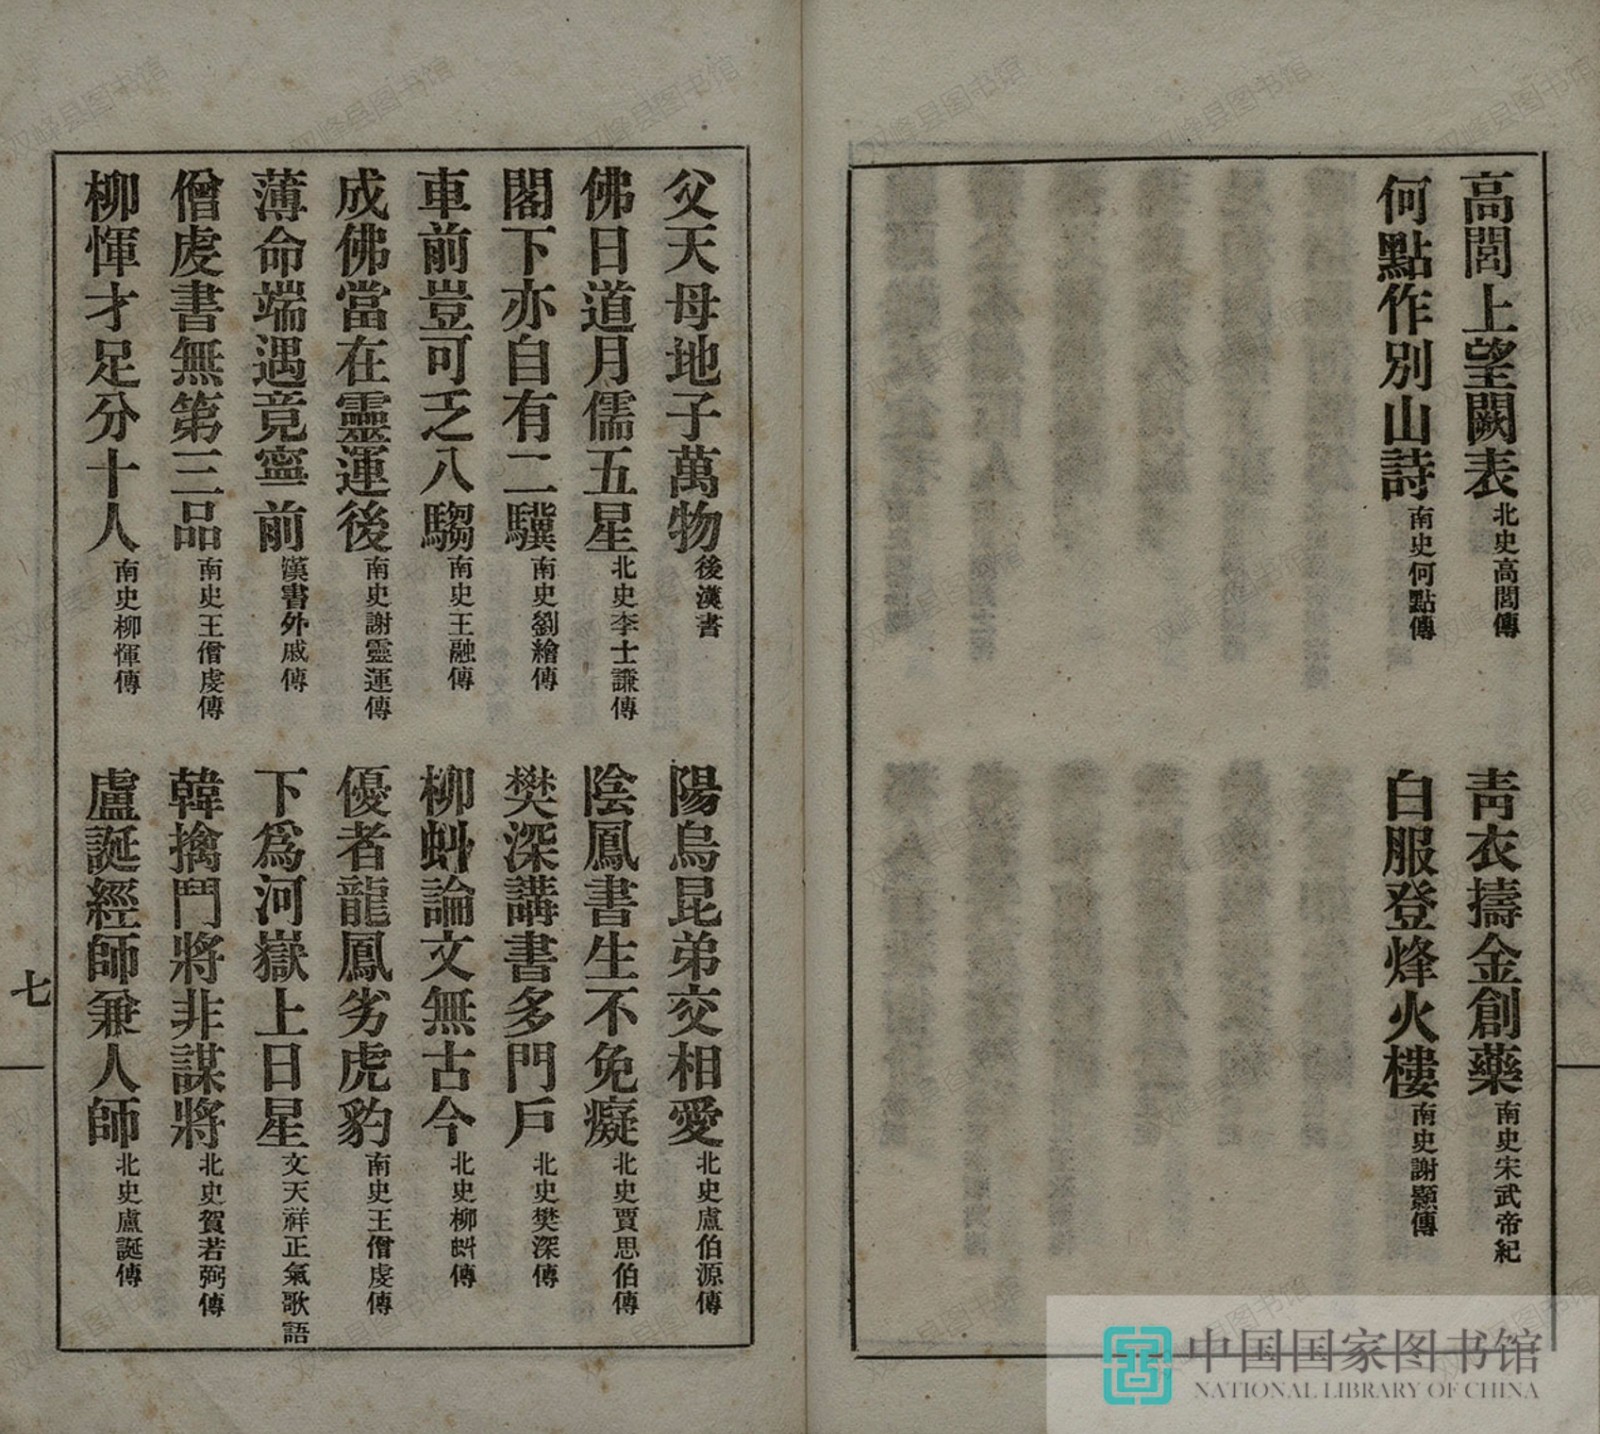 高閭上望闕表北史高閭傳
青衣擣金創藥南史宋武帝紀
何點作別山詩南史何點傳
白服登烽火樓南史謝顥傳
父天母地子萬物後漢書
陽烏昆弟交相愛北史盧伯源傳
佛日道月儒五星北史李士謙傳
陰鳳書生不免癡北史賈思伯傳
閣下亦自有二驥南史劉繪傳
樊深講書多門戶北史樊深傳
車前豈可乏八騶南史王融傳
柳虯論文無古今北史柳虯傳
成佛當在靈運後南史謝靈運傳
優者龍鳳劣虎豹南史王僧虔傳
薄命端遇竟寧前漢書外戚傳
下為河嶽上日星文天祥正氣歌語
僧虔書無第三品南史王僧虔傳
韓擒鬥將非謀將北史賀若弼傳
柳惲才足分十人南史柳惲傳
盧誕經師兼人師北史盧誕傳
七
中国国家图书馆
NATIONAL LIBRARY OF CHINA
双峰县图书馆